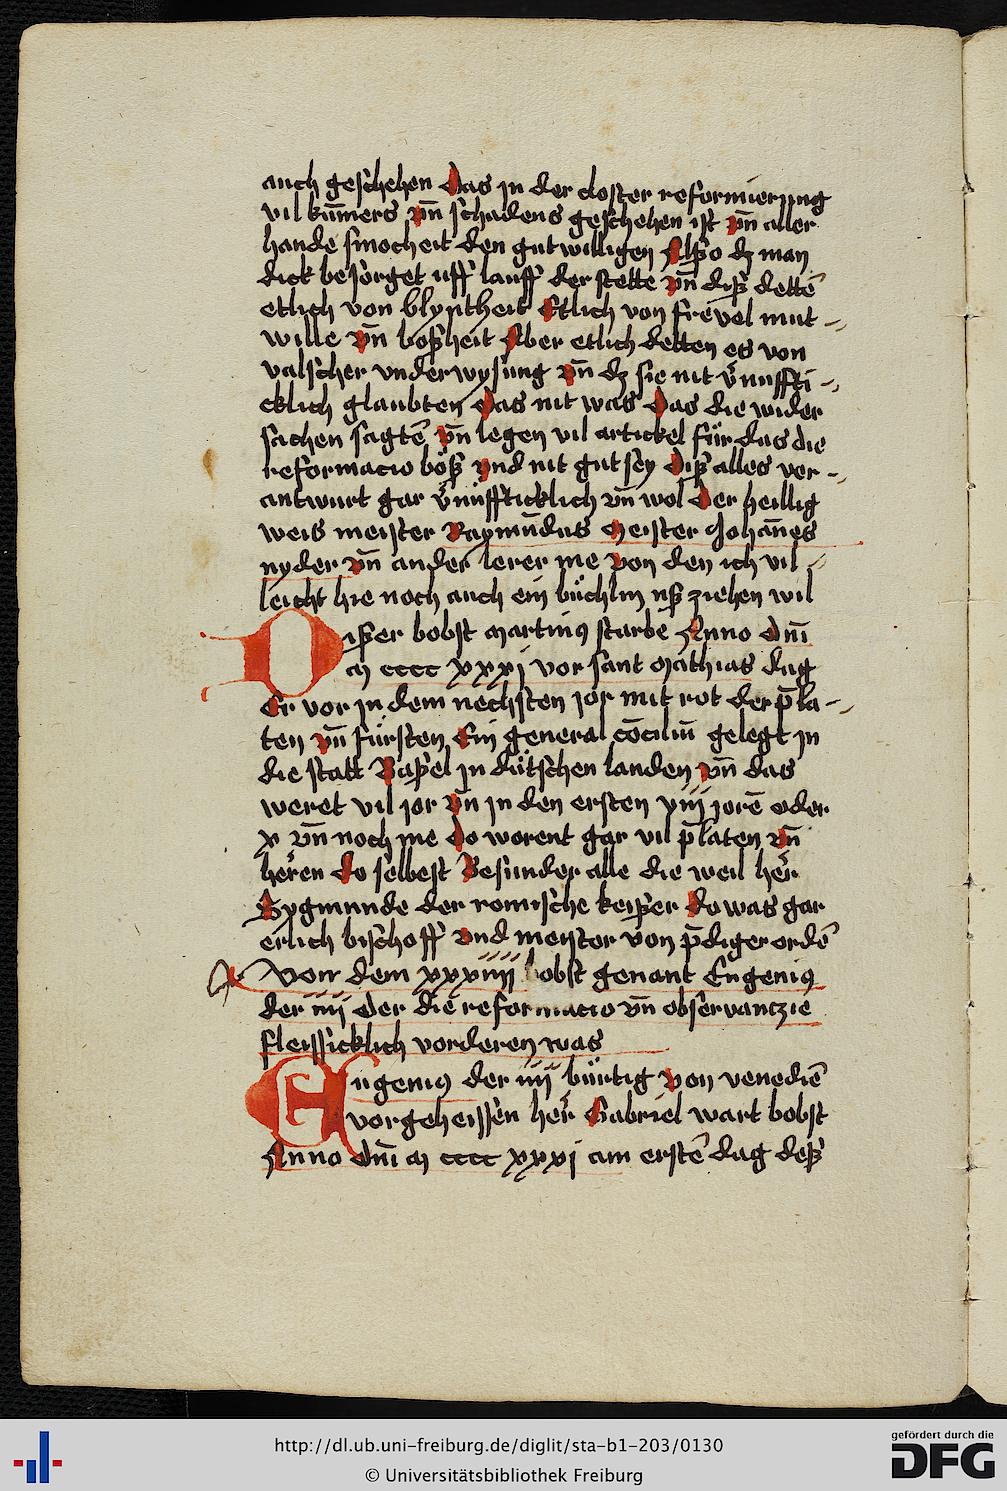 auch geschehen Das jn der closter reformierung
vil kum̄ers vn̄ schadens geschehen ist vn̄ aller
hande smocheit den gutwilligen Alßo dz man
dick besorget uff lauff der stette vn̄ diß dettē
etlich von blyntheit Etlich von frevel mut
wille vn̄ boßheit Aber etlich detten es von
valscher underwysung vn̄ dz sie nit v̄nuffti
cklich glaubten Das nit was Das die wider
sachen sagtē vn̄ legen vil artickel für das die
reformacio böß vnd nit gut sey Diß alles ver
antwurt gar v̄nüffticklich vn̄ wol Der heillig
weis meister Raymūdus Meister Johan̄es
nyder vn̄ ander lerer me von den ich vil
leicht hie noch auch ein büchlin uß ziehen wil
Dißer bobst Martinus starbe Anno Dn̄i
M cccc xxxj vor sant Mathias dag
Er vor jn dem nechsten jor mit rot der p̄la
ten vn̄ fürsten Ein general cōciliū gelegt jn
die statt Baßel jn dütschen landen vn̄ das
weret vil jor vn̄ jn den ersten viij jorē oder
x vn̄ noch me do worent gar vil p̄laten vn̄
heren do selbest Besunder alle die weil her
Sygmunde der romische keißer do was gar
erlich bischoff vnd meister von p̄diger ordē
Von dem xxxiiij bobst genant Eugenius
der iiij Der die reformacio vn̄ observantzie
fleissicklich vorderen was
Eugenius der iiij bürtig von venediē
vor geheissen her Gabriel wart bobst
Anno Dn̄i M cccc xxxj am erstē dag deß
http://dl.ub.uni-freiburg.de/diglit/sta-b1-203/0130
© Universitätsbibliothek Freiburg
gefördert durch die
DFG